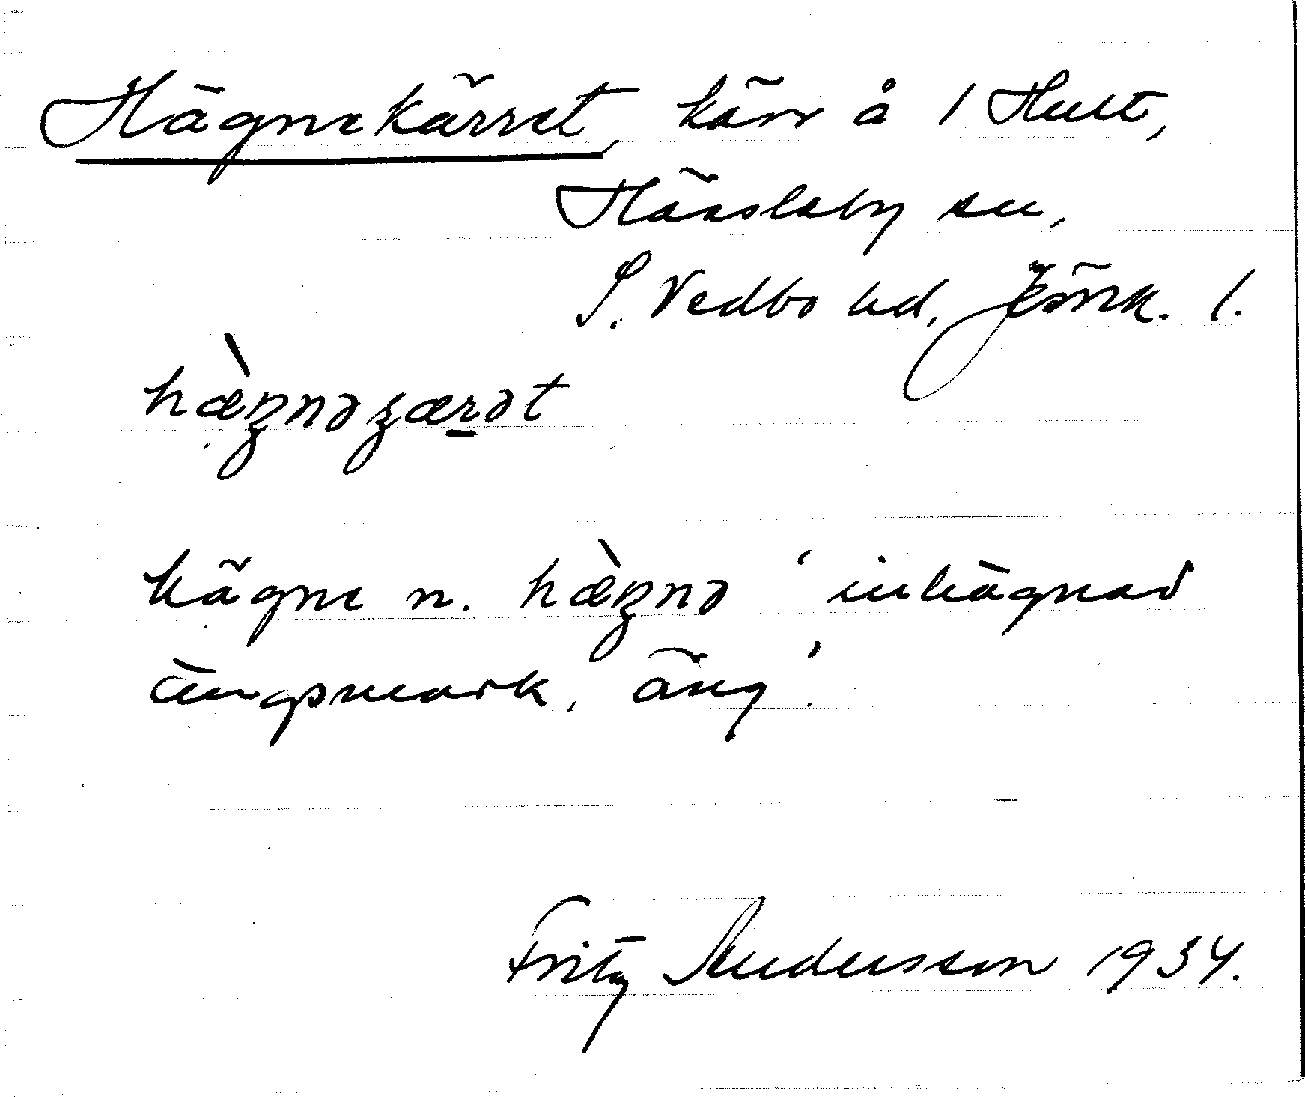 Hägnekärret, kärr å 1 Hult,
Hässleby sn,
S. Vedbo hd, Jönk. l.
hæ̀ʒnəʒærət
hägne n. hæ̀ʒnə 'inhägnad
ängsmark, äng'.
Fritz Andersson 1934.